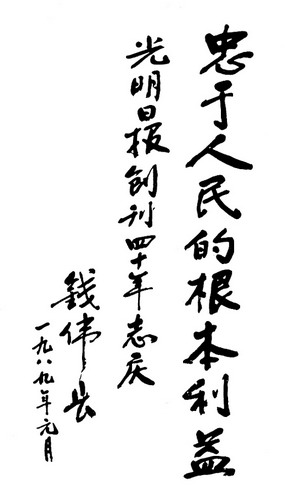 忠于人民的根本利益
光明日报创刊四十年志庆
钱伟长
一九八九年元月